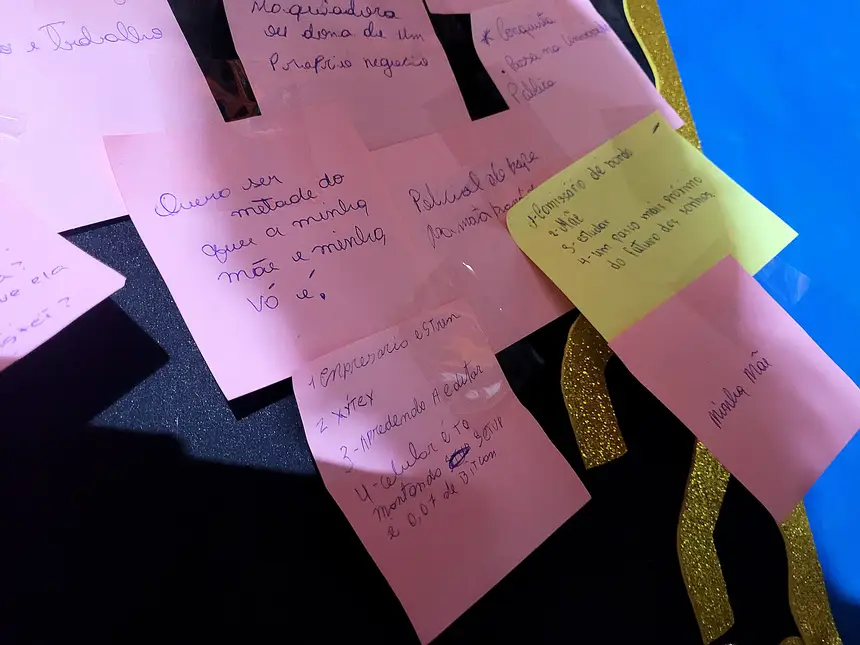 e Trabalho
Maquiadora
ou dona de um
Proprio negocio
* Conquista
Pública
Quero ser
metade do
que a minha
mãe e minha
vó é.
Policial do bope
1-Comissário de bordo
2-Mãe
3-estudar
4-um passo mais próximo
do futuro dos sonhos
ue ela
1 Enpresario estren
2 XYTEX
3-Apredendo A editar
4-celular é to
montando SETUP
e 0,01 de Bitcon
Minha Mãe